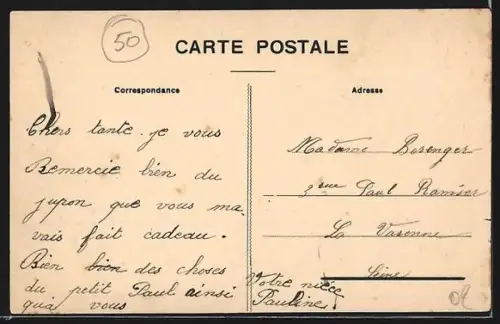 50
CARTE POSTALE
Correspondance
Chers tante. je vous
Remercie bien du
jupon que vous ma-
vais fait cadeau.
Bien bien des choses
du petit Paul ainsi
quà vous
Votre nièce
Pauline
Adresse
Madame Berenger
3 rue Paul Ramier
La Varenne
Seine